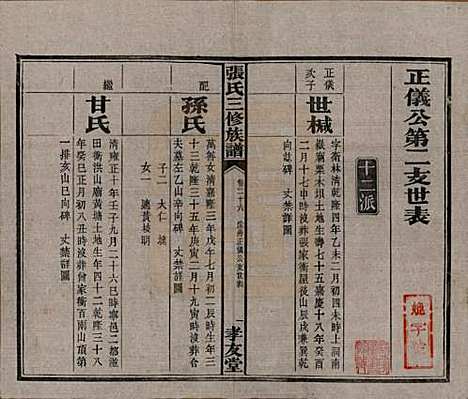 正儀公第二支世表
十二派
正儀
次子
世棫
字衛林清乾隆四年乙未二月初四日未時上洞南
嶽廟栗木垻土地生壽七十五嘉慶十八年癸酉
二月十七申時歿葬張家衝屋後山辰戌兼巽乾
向誌碑 丈禁詳圖
張氏三修族譜
孝友堂
配
孫氏
萬善女清雍正三年戊午七月初二戌時生年三
十三乾隆三十五年庚寅二月十七日戌時歿葬舍
夫墓左乙山辛向碑 丈禁詳圖
子二 大 大
女一 適黃
繼
甘氏
清雍正十年壬子九月二十六巳時寧邑二都滋
田衝洪山廟黃塘土地生年四十二乾隆三十八
年癸巳十月初八丑時歿葬曾家衝百南山頂
一排亥山巳向碑 丈禁詳圖